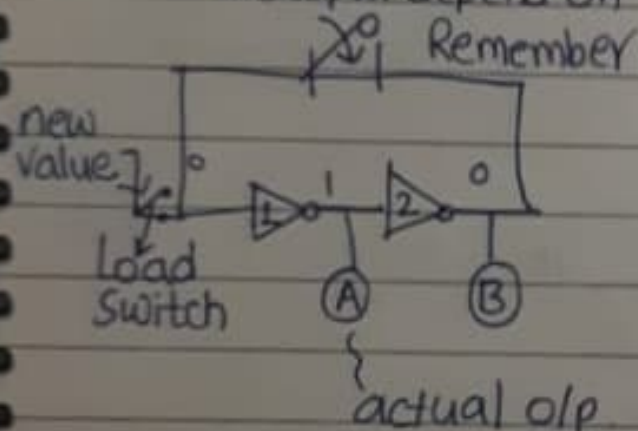 Remember
0
new
value
0
1
0
1
2
Load
switch
A
B
actual o/p